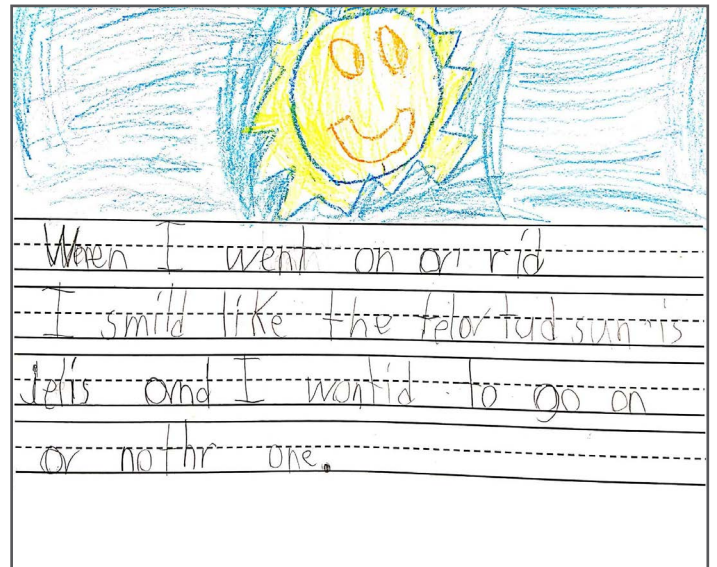 When I went on or rid
I smild like the felor tud sun is
Jelis and I wontid to go on
or nothr one.